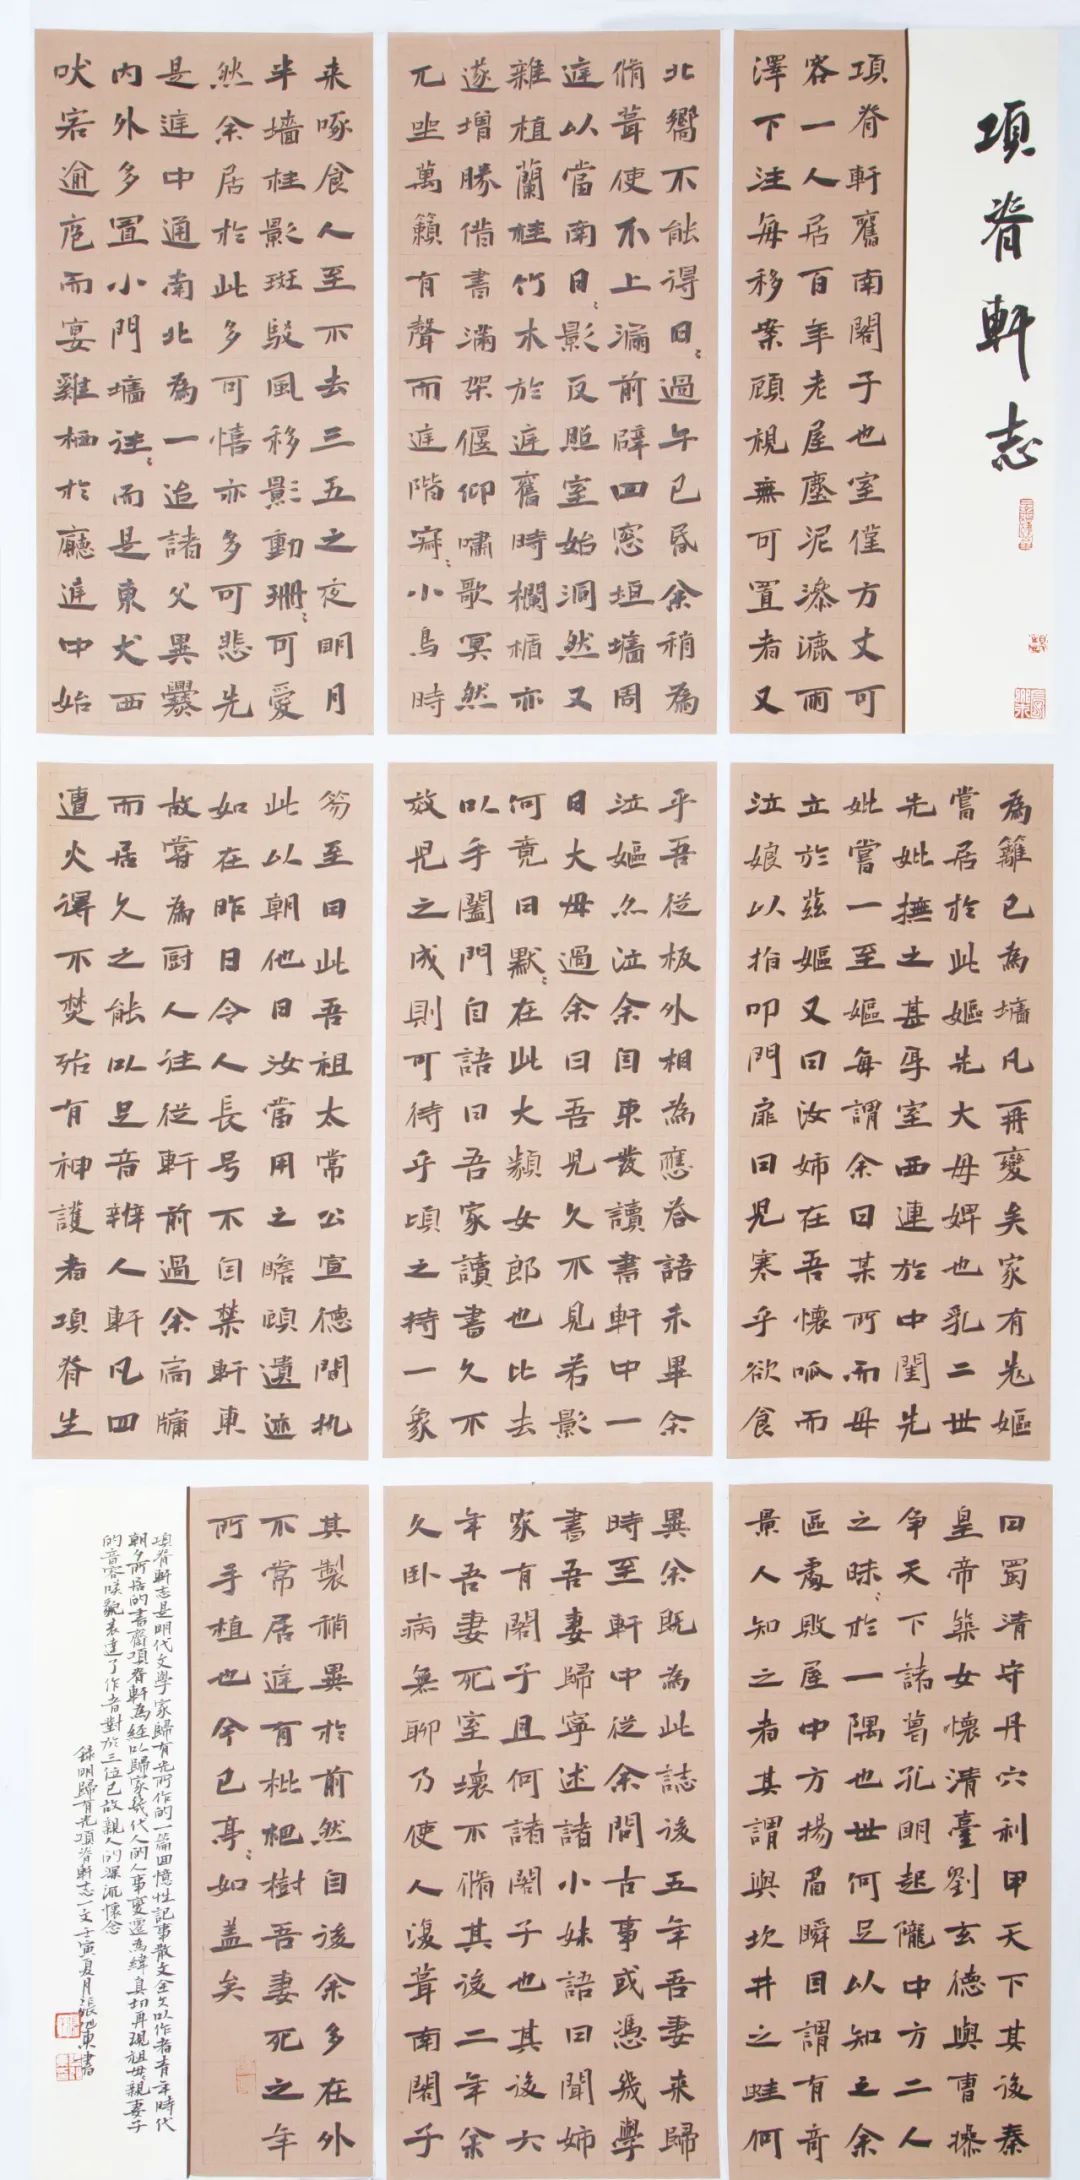 項脊軒志
項脊軒舊南閣子也室僅方丈可
容一人居百年老屋塵泥滲漉雨
澤下注每移案顧視無可置者又
北嚮不能得日〻過午已昏余稍為
脩葺使不上漏前辟四窓垣墻周
庭以當南日〻影反照室始洞然又
雜植蘭桂竹木於庭舊時欄楯亦
遂增勝借書滿架偃仰嘯歌冥然
兀坐萬籟有聲而庭階寂〻小鳥時
来啄食人至不去三五之夜明月
半墻桂影斑駁風移影動珊〻可愛
然余居於此多可憘亦多可悲先
是庭中通南北為一迨諸父異爨
内外多置小門墻往〻而是東犬西
吠客逾庖而宴雞栖於廳庭中始
為籬已為墻凡再變矣家有老嫗
嘗居於此嫗先大母婢也乳二世
先妣撫之甚厚室西連於中閨先
妣嘗一至嫗每謂余曰某所而母
立於茲嫗又曰汝姊在吾懷呱而
泣娘以指叩門扉曰兒寒乎欲食
乎吾從板外相為應答語未畢余
泣嫗亦泣余自束髮讀書軒中一
日大母過余曰吾兒久不見若影
何竟日默〻在此大類女郎也比去
以手闔門自語曰吾家讀書久不
效兒之成則可待乎頃之持一象
笏至曰此吾祖太常公宣德間执
此以朝他日汝當用之瞻顧遺迹
如在昨日令人長号不自禁軒東
故嘗為厨人往從軒前過余扃牖
而居久之能以足音辨人軒凡四
遭火得不焚殆有神護者項脊生
曰蜀清守丹穴利甲天下其後秦
皇帝築女懷清臺劉玄德與曹操
争天下諸葛孔明起隴中方二人
之昧〻於一隅也世何足以知之余
區處敗屋中方揚眉瞬目謂有奇
景人知之者其謂與坎井之蛙何
異余既為此誌後五年吾妻来歸
時至軒中從余問古事或憑幾學
書吾妻歸寧述諸小妹語曰聞姊
家有閣子且何諸閣子也其後六
年吾妻死室壞不脩其後二年余
久卧病無聊乃使人復葺南閣子
其製稍異於前然自後余多在外
不常居庭有枇杷樹吾妻死之年
所手植也今已亭〻如盖矣
項脊軒志是明代文學家歸有光所作的一篇回憶性記事散文全文以作者青年時代
朝夕所居的書齋項脊軒為經以歸家幾代人的人事變遷為緯真切再現祖母親妻子
的音容咲貌表達了作者對於三位已故親人的深沉懷念
録明歸有光項脊軒志一文壬寅夏月張東書